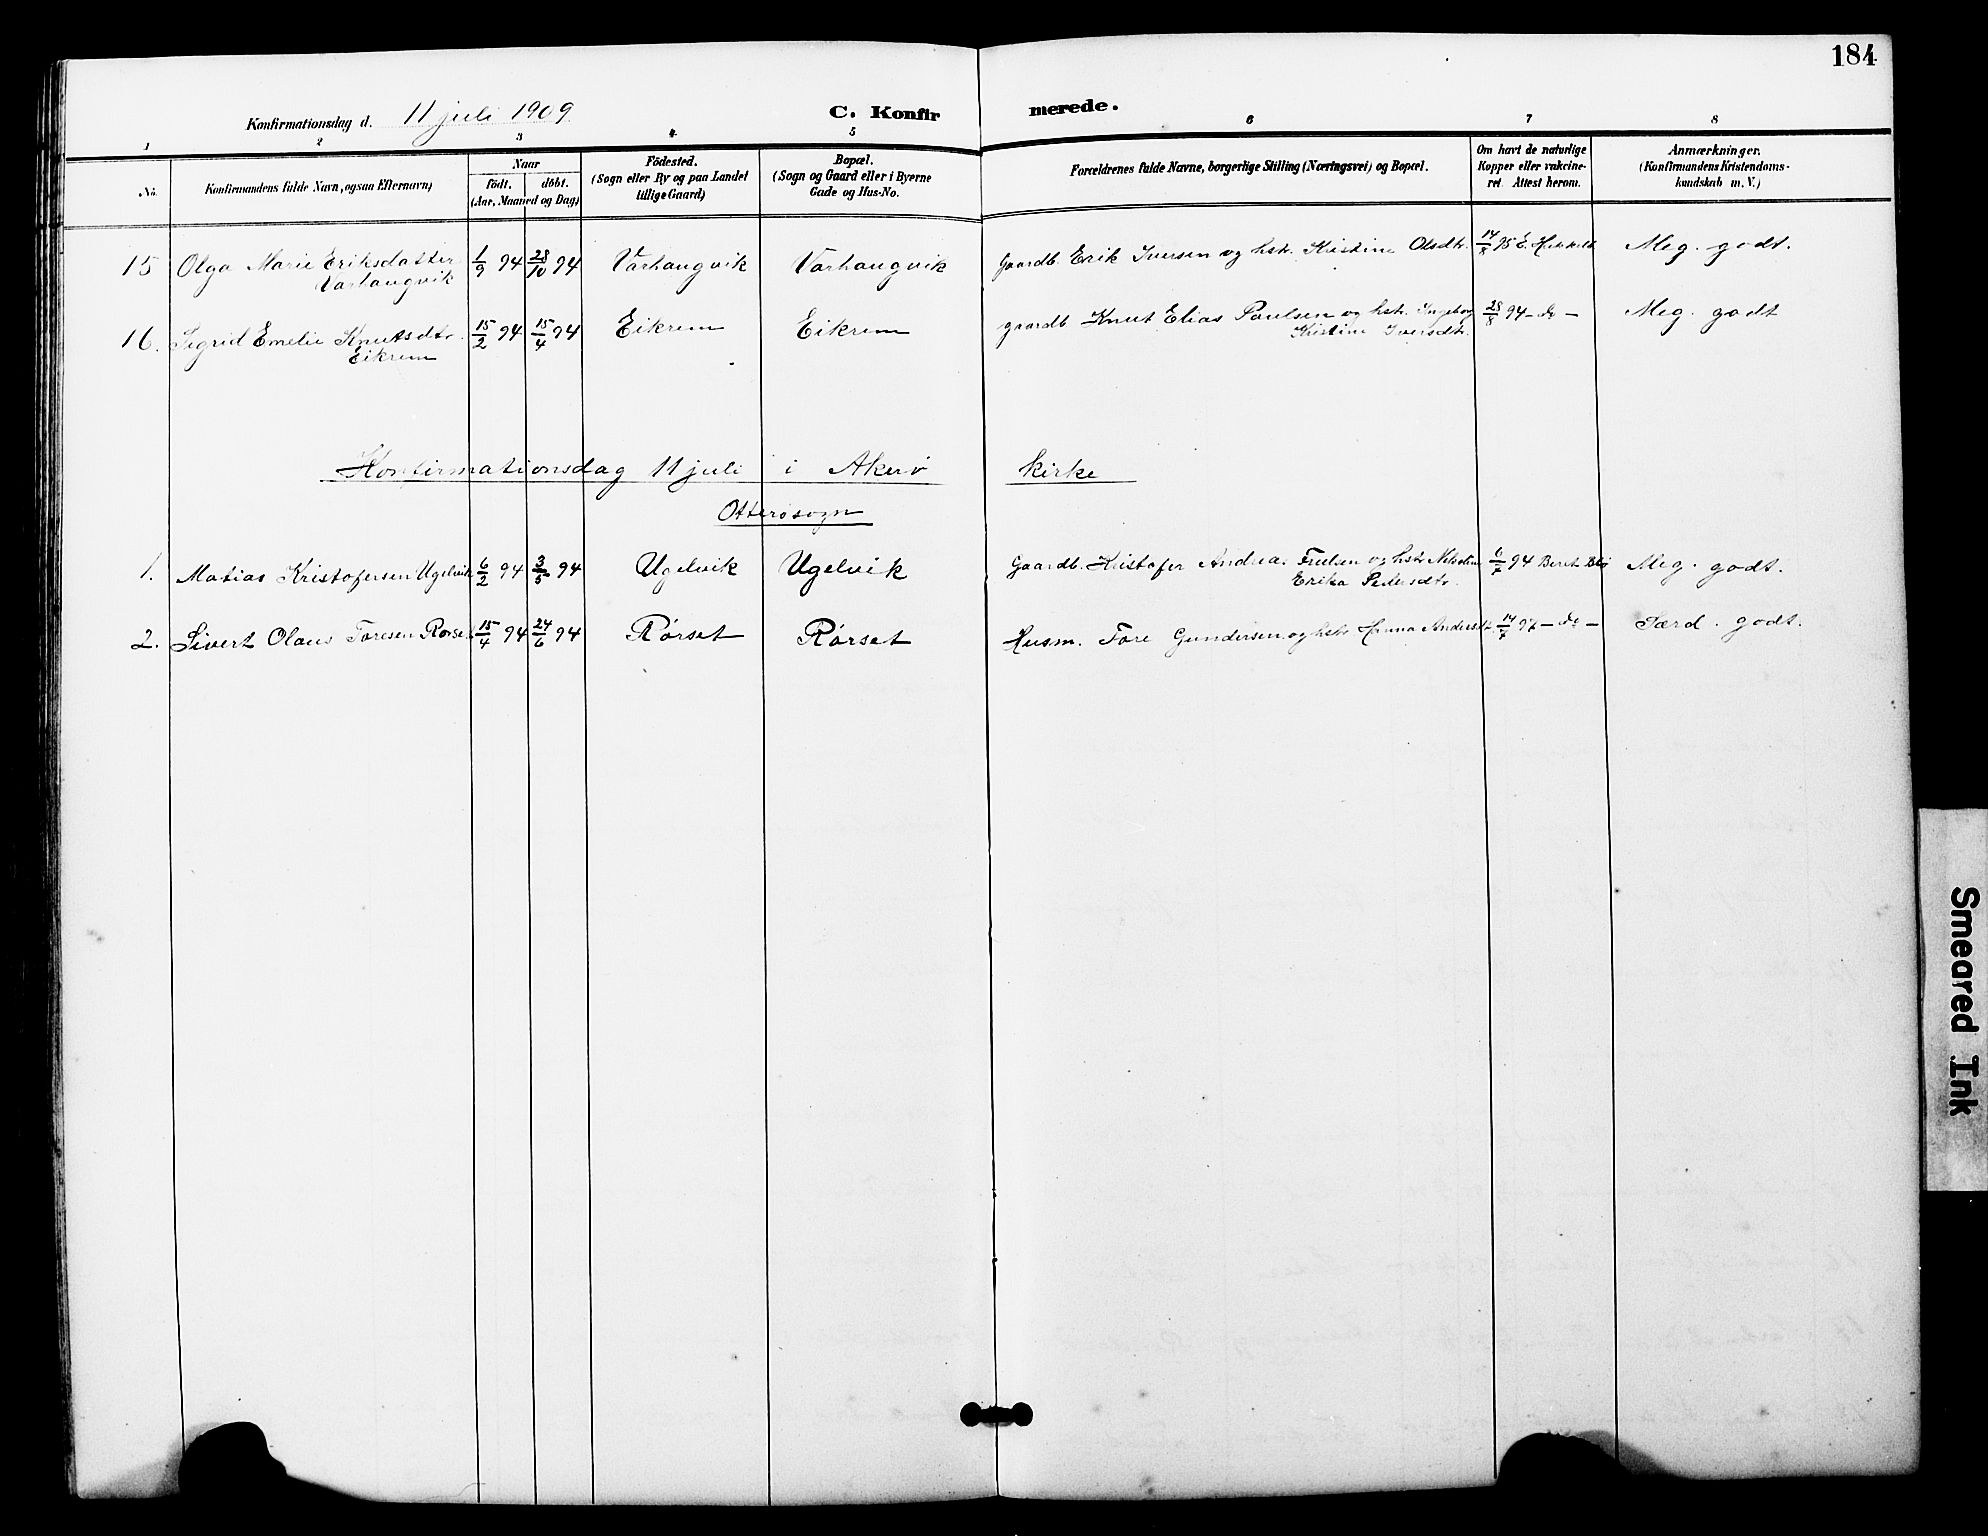 184
Konfirmationsdag d. 11 juli 1909
C. Konfirmerede.
1 2 3 4 5 6 7 8
No. Konfirmandens fulde Navn, ogsaa Efternavn) Naar født. døbt. (Aar, Maaned og Dag)
Fødested. (Sogn eller By og paa Landet tillige Gaard)
Bopæl. (Sogn og Gaard eller i Byerne Gade og Hus-No.
Forældrenes fulde Navne, borgerlige Stilling (Næringsvei) og Bopæl.
Om havt de naturlige Kopper eller vakcineret. Attest herom.
Anmærkninger. (Konfirmandens Kristendomskundskab m. V.)
15 Olga Marie Eriksdatter 1/9 94 28/10 94 Varhaugvik Varhaugvik Gaardb. Erik Iversen og hstr. Kristine Olsdtr. 14/8 95 E.  Meg. godt.
Varhaugvik
16. Sigrid Emelie Knutsdtr. 15/2 94 15/4 94 Eikrem Eikrem gaardb. Knut Elias Paulsen og hstr. Ingeborg 28/8 94 - do - Meg. godt
Eikrem Kristine Iversdtr.
Konfirmationsdag 11 juli i Akerø kirke
Otterøsogn
1. Matias Kristofersen Ugelvik 6/2 94 3/5 94 Ugelvik Ugelvik Gaardb. Kristofer Andrea. og hstr. 6/7 94 Beret Blø Meg. godt.
Erika Pedersdtr.
2. Sivert Olaus Toresen Rørset 15/4 94 24/6 94 Rørset Rørset Husm. Tore Gundersen og hstr. Hanna Andersdtr. 14/7 97 - do - Særd. godt.
Smeared Ink